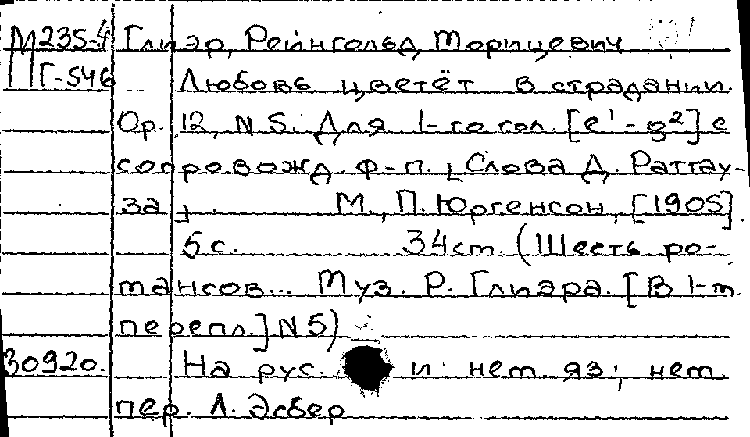 М235-4 Глиэр, Рейнгольд Морицевич
Г-546 Любовь цветёт в страдании.
Op. 12, N 5. Для 1-го гол. [e¹-g²] с
сопровожд. ф-п. [Слова Д. Раттау-
за]. М., П. Юргенсон, [1905].
5 с. 34 cm. (Шесть ро-
мансов... Муз. Р. Глиэра. [В 1-м
перепл.] N 5)
30920. На рус. и нем. яз; нем.
пер. Л. Эсбер